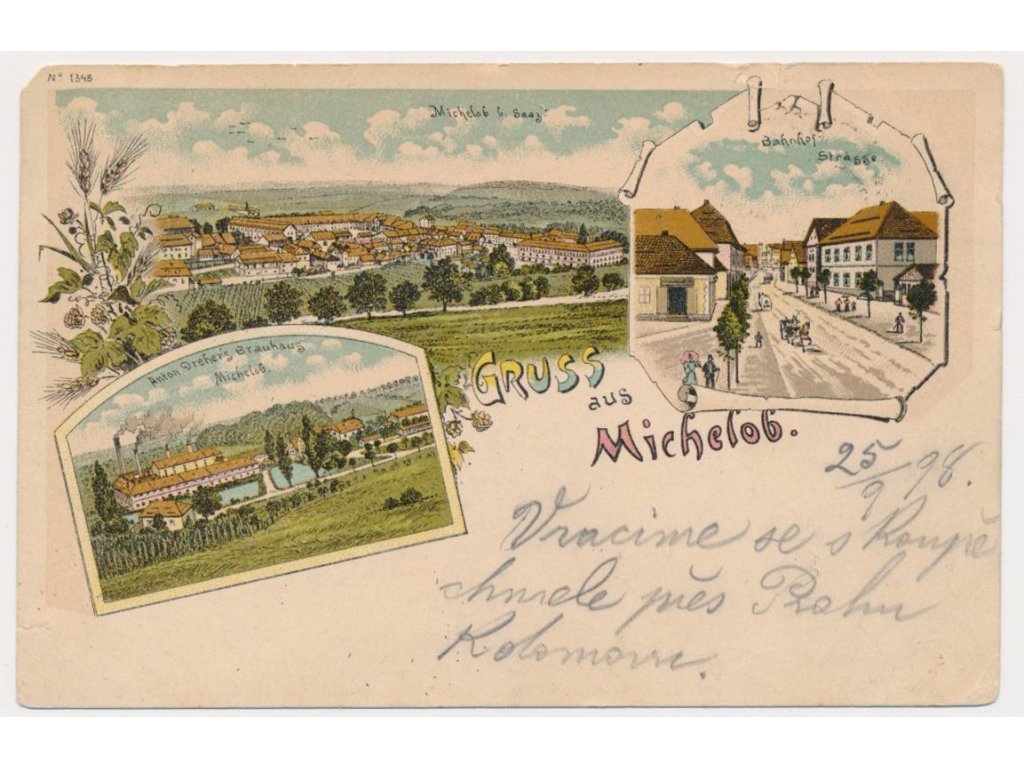 Nº 1348
Michelob b. Saaz
Bahnhof-
Strasse.
Anton Dreher's Brauhaus
Michelob.
GRUSS
aus
Michelob.
25/9 98.
Vracime se s koupě
chmele přes Prahu